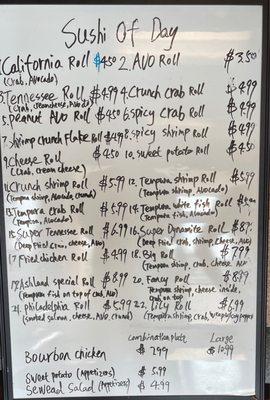 Sushi Of Day
1. California Roll $4.50 2. AVO Roll $3.50
(Crab, Avocado)
3. Tennessee Roll $4.99 4. Crunch crab Roll $4.99
(Crab, creamcheese, Avocado)
5. Peanut AVO Roll $4.50 6. Spicy crab Roll $4.99
7. Shrimp crunch Flake Roll $4.99 8. Spicy shrimp Roll $4.99
9. Cheese Roll $4.50 10. sweet potato Roll $4.50
(Crab, cream cheese)
11. Crunch shrimp Roll $5.99 12. Tempura shrimp Roll $5.99
(Tempura shrimp, Avocado, crunch) (Tempura shrimp, Avocado)
13. Tempora crab Roll $5.99 14. Tempura white fish Roll
(Tempura, Avocado) (Tempura fish, Avocado)
15. Super Tennessee Roll $6.99 16. Super Dynamite Roll
(Deep fried crab, cheese, AVO) (Deep fried crab, shrimp, cheese, AVO)
17. Fried chicken Roll $4.99 18. Big Roll $7.99
(Tempura shrimp, crab, cheese, AVO
19. Ashland special Roll $8.99 20. Fancy Roll $8.99
(Tempura fish on top of crab, AVO) (Tempura shrimp cheese inside,
crab on top
21. Philadelphia Roll $5.99 22. Lily Roll $6.99
(smoked salmon, cheese, AVO, crunch) (Tempura shrimp, crab,
Combination Plate Large
Bourbon chicken $7.99 $10.99
sweet potato (Appetizers) $5.99
seaweed Salad (Appetizers) $4.99